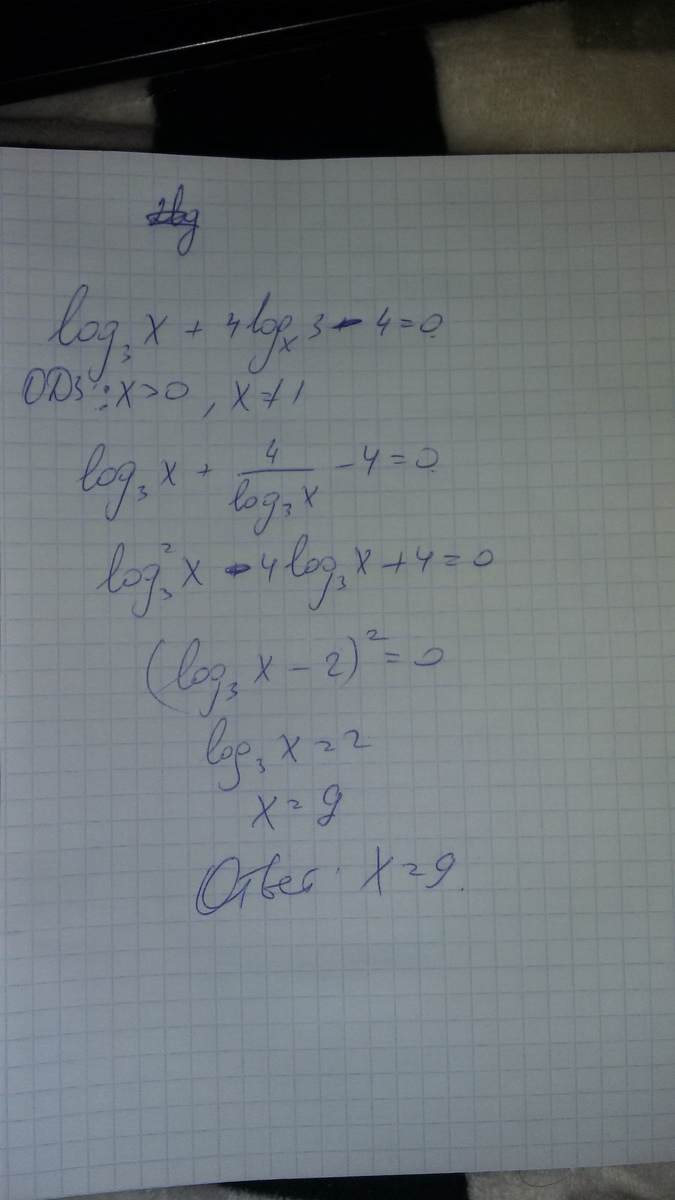 log₃ x + 4log ₓ 3 - 4 = 0
ОДЗ: x > 0, x ≠ 1
log₃ x + 4/log₃ x - 4 = 0
log₃² x - 4log₃ x + 4 = 0
(log₃ x - 2)² = 0
log₃ x = 2
x = 9
Ответ: x = 9.